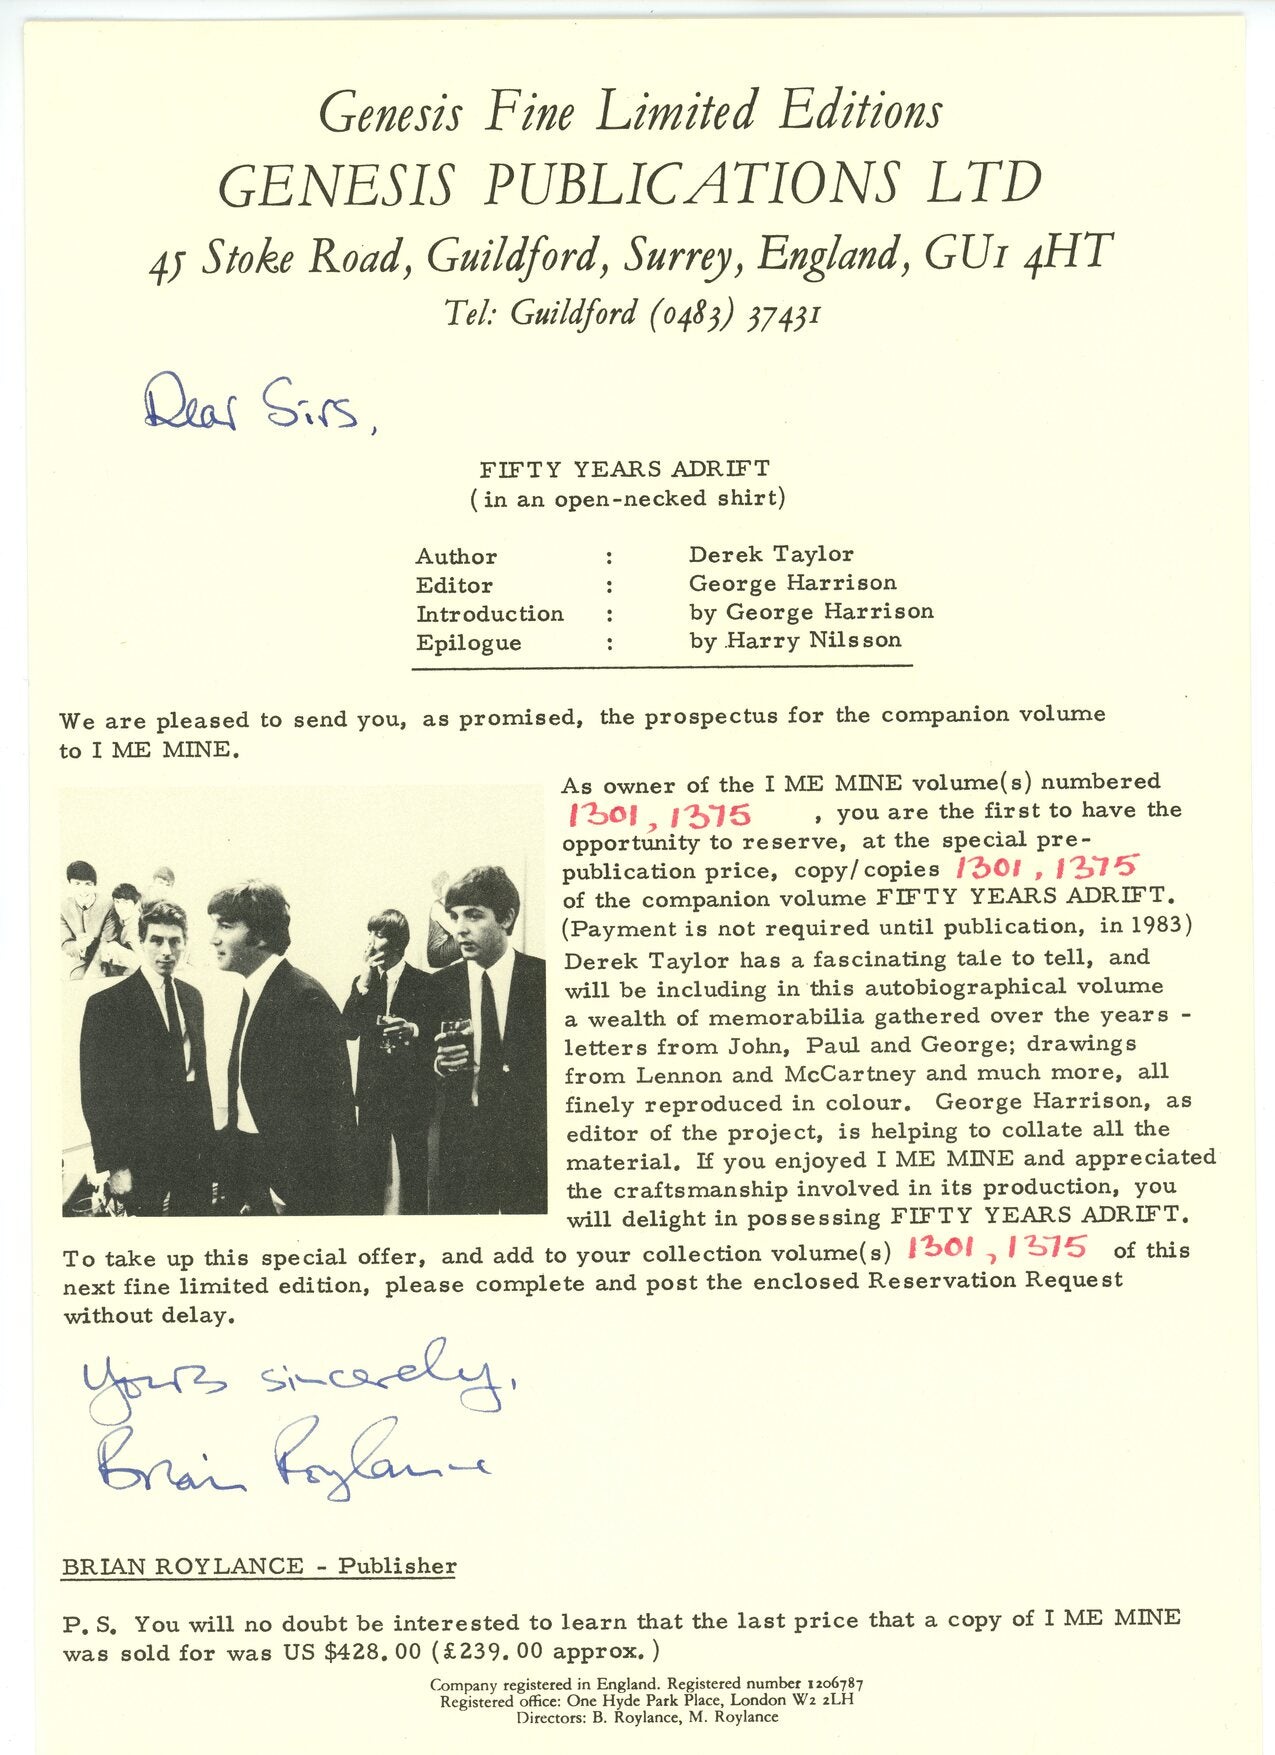 Genesis Fine Limited Editions
GENESIS PUBLICATIONS LTD
45 Stoke Road, Guildford, Surrey, England, GU1 4HT
Tel: Guildford (0483) 37431
Dear Sirs,
FIFTY YEARS ADRIFT
(in an open-necked shirt)
Author : Derek Taylor
Editor : George Harrison
Introduction : by George Harrison
Epilogue : by Harry Nilsson
We are pleased to send you, as promised, the prospectus for the companion volume
to I ME MINE.
As owner of the I ME MINE volume(s) numbered
1301, 1375 , you are the first to have the
opportunity to reserve, at the special pre-
publication price, copy/copies 1301, 1375
of the companion volume FIFTY YEARS ADRIFT.
(Payment is not required until publication, in 1983)
Derek Taylor has a fascinating tale to tell, and
will be including in this autobiographical volume
a wealth of memorabilia gathered over the years -
letters from John, Paul and George; drawings
from Lennon and McCartney and much more, all
finely reproduced in colour. George Harrison, as
editor of the project, is helping to collate all the
material. If you enjoyed I ME MINE and appreciated
the craftsmanship involved in its production, you
will delight in possessing FIFTY YEARS ADRIFT.
To take up this special offer, and add to your collection volume(s) 1301, 1375 of this
next fine limited edition, please complete and post the enclosed Reservation Request
without delay.
Yours sincerely,
Brian Roylance
BRIAN ROYLANCE - Publisher
P.S. You will no doubt be interested to learn that the last price that a copy of I ME MINE
was sold for was US $428.00 (£239.00 approx.)
Company registered in England. Registered number 1206787
Registered office: One Hyde Park Place, London W2 2LH
Directors: B. Roylance, M. Roylance